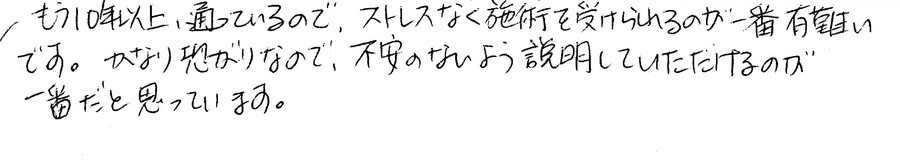 もう10年以上、通っているので、ストレスなく施術を受けられるのが一番有難い
です。かなり恐がりなので、不安のないよう説明していただけるのが
一番だと思っています。